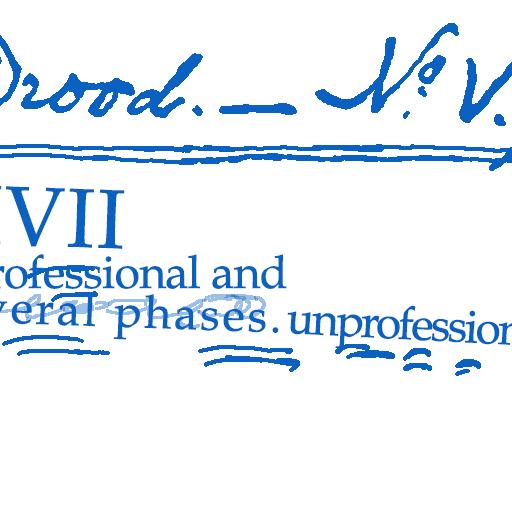 Drood. — No. V.
VII
rofessional and
veral phases. unprofession